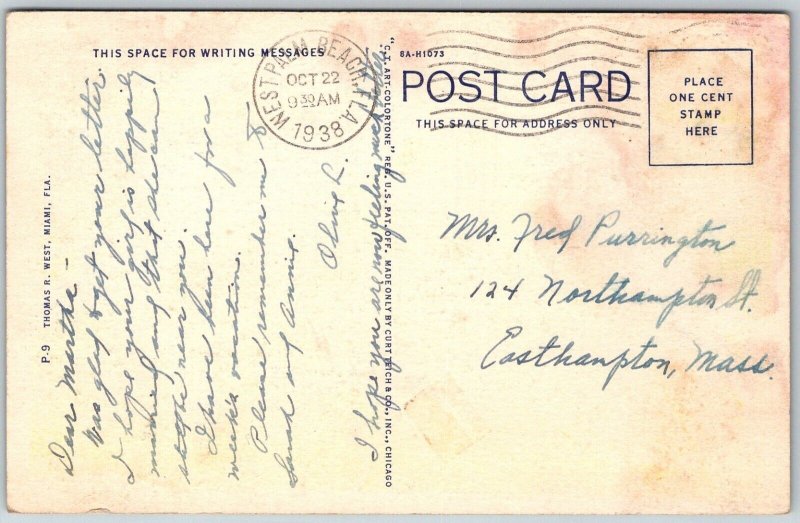 THIS SPACE FOR WRITING MESSAGES
8A-H1073
POST CARD
THIS SPACE FOR ADDRESS ONLY
PLACE
ONE CENT
STAMP
HERE
WEST PALM BEACH, FLA.
OCT 22
9 30 AM
1938
Dear Martha –
Was glad to get your letter.
I hope your girl is happily
married and that she can
settle near you.
I have been here for a
week's vacation.
Please remember me to
Sarah and Annie.
Olive L.
I hope you are now feeling much better.
Mrs. Fred Purrington
124 Northampton St.
Easthampton, Mass.
P-9 THOMAS R. WEST, MIAMI, FLA.
"C.T. ART-COLORTONE" REG. U.S. PAT. OFF. MADE ONLY BY CURT TEICH & CO., INC., CHICAGO